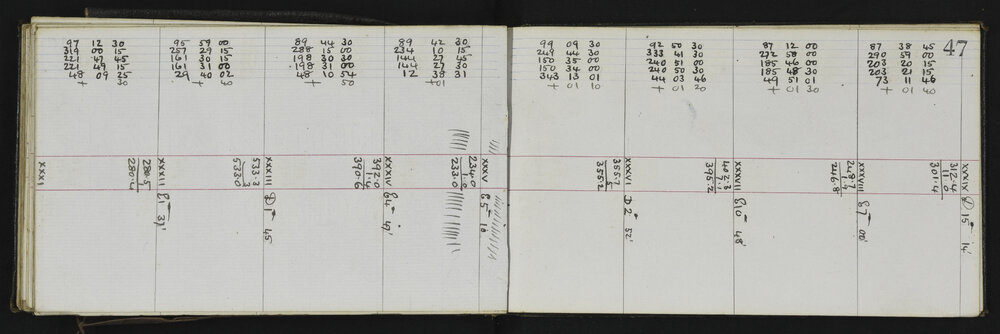 97 12 30
319 00 15
221 47 45
221 49 15
48 09 25
+ 30
95 59 00
257 29 15
161 30 15
161 31 00
29 40 02
+ 40
89 44 30
288 15 00
198 30 30
198 31 00
48 10 54
+ 50
89 42 30
234 10 15
144 27 45
144 27 30
12 38 31
+01
99 09 30
249 44 30
150 35 00
150 34 00
343 13 01
+ 01 10
92 50 30
333 41 30
240 51 00
240 50 30
44 03 46
+ 01 20
87 12 00
272 58 00
185 46 00
185 48 30
49 51 01
+ 01 30
87 38 45
290 59 00
203 20 15
203 21 15
73 11 46
+ 01 40
47
XXXI
280.5
280.4
XXXII
31'
533.3
3
533.0
XXXIII
1 45'
392.0
1.4
390.6
XXXIV
4 49'
254.0
253.0
XXXV
5
355.7
5
355.2
XXXVI
2 52'
402.3
7.1
395.2
XXXVII
10 48'
248.7
1.9
246.8
XXXVIII
7 00'
312.4
11.0
301.4
XXXIX
15 14'